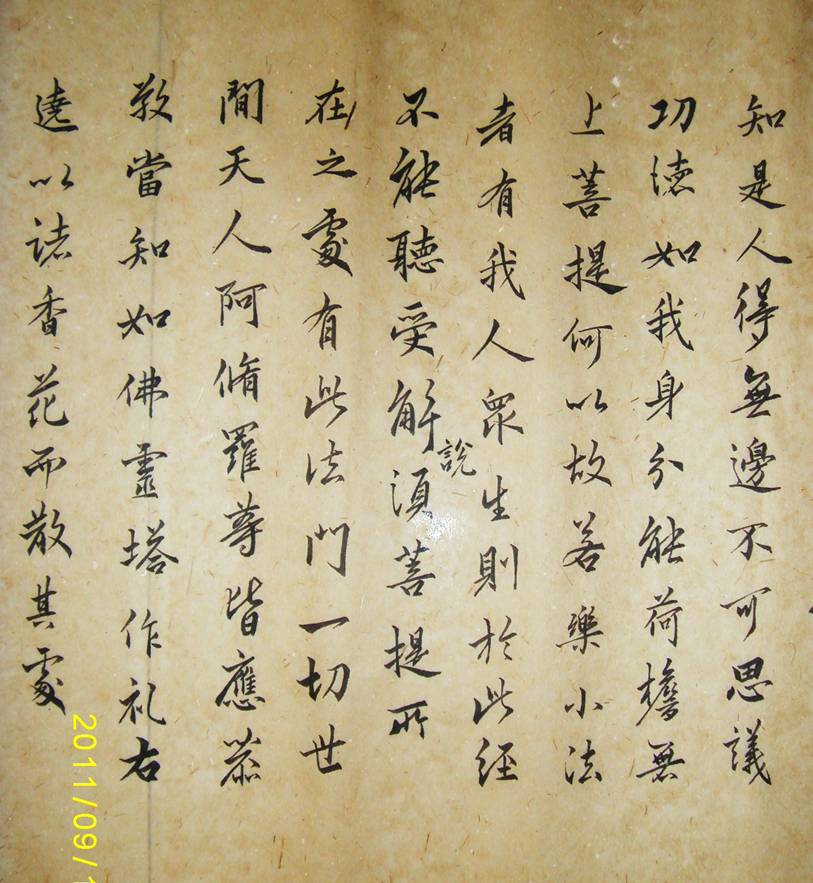 知是人得無邊不可思議
功徳如我身分能荷擔無
上菩提何以故若樂小法
者有我人衆生則於此経
不能聽受解說須菩提所
在之處有此法門一切世
間天人阿脩羅等皆應恭
敬當知如佛靈塔作礼右
遶以諸香花而散其處
2011/09/1